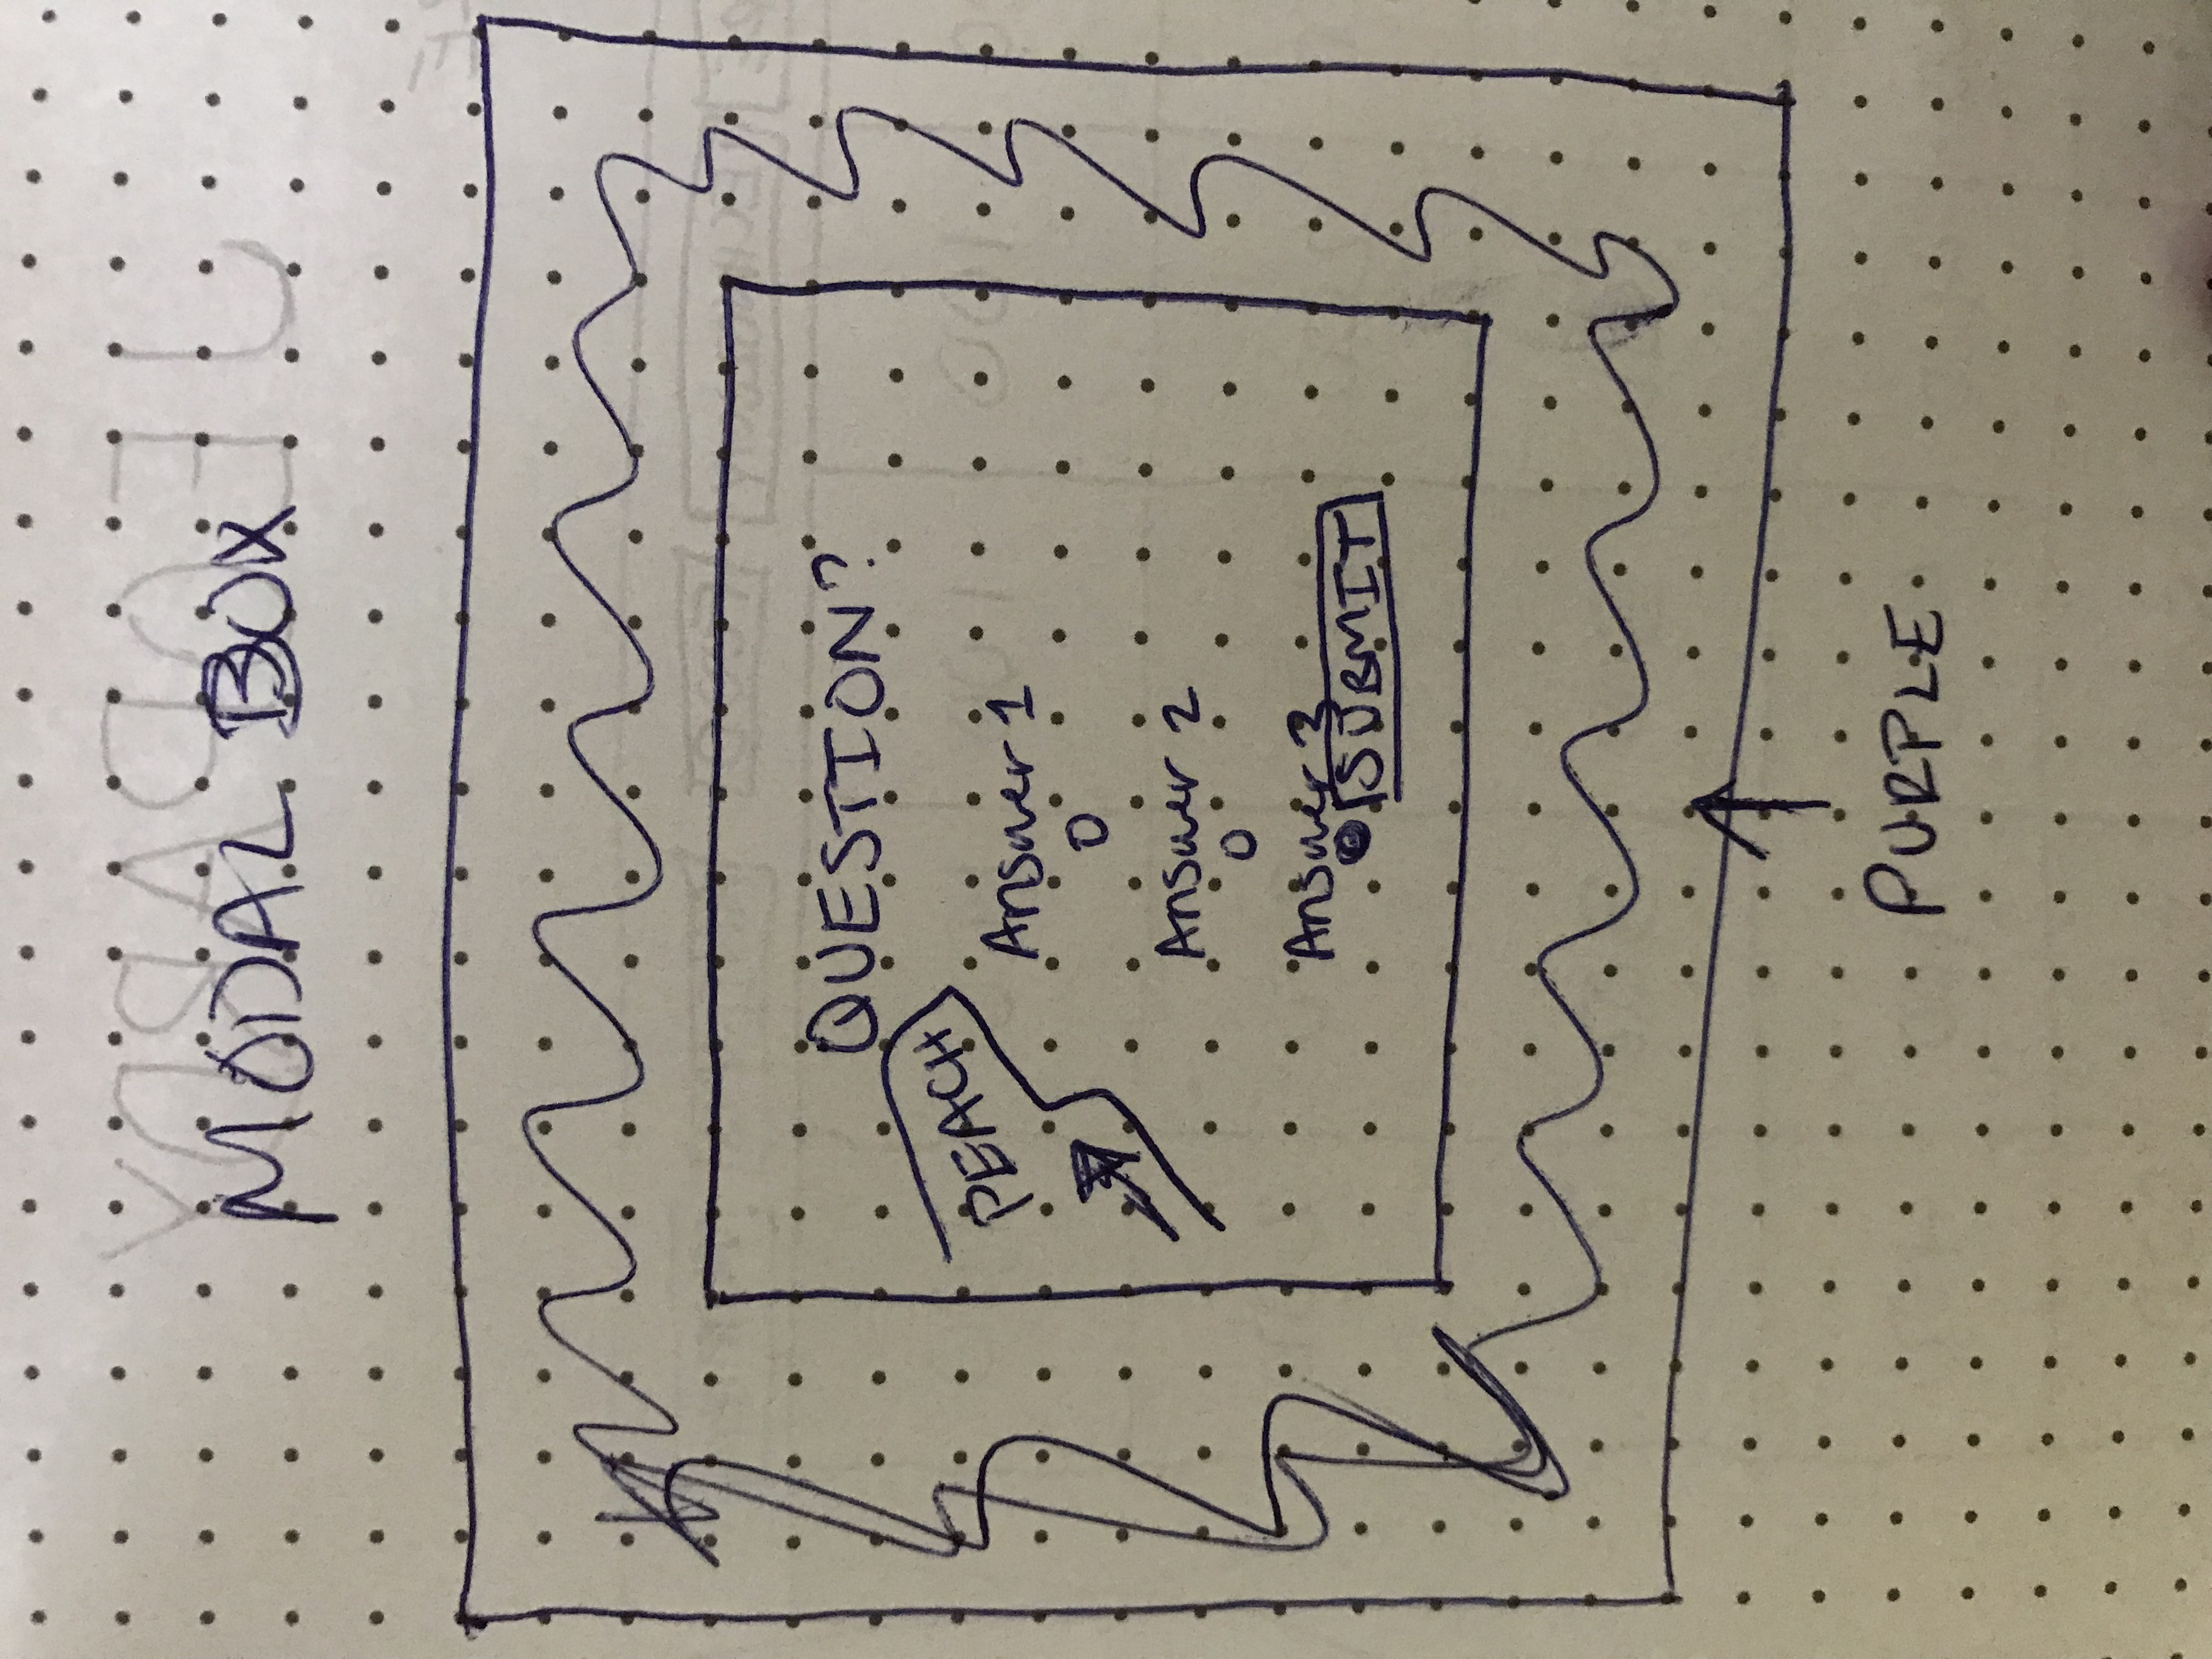 JEOPARDY
MODAL BOX
QUESTION?
PEACH
Answer 1
Answer 2
Answer 3
SUBMIT
PURPLE